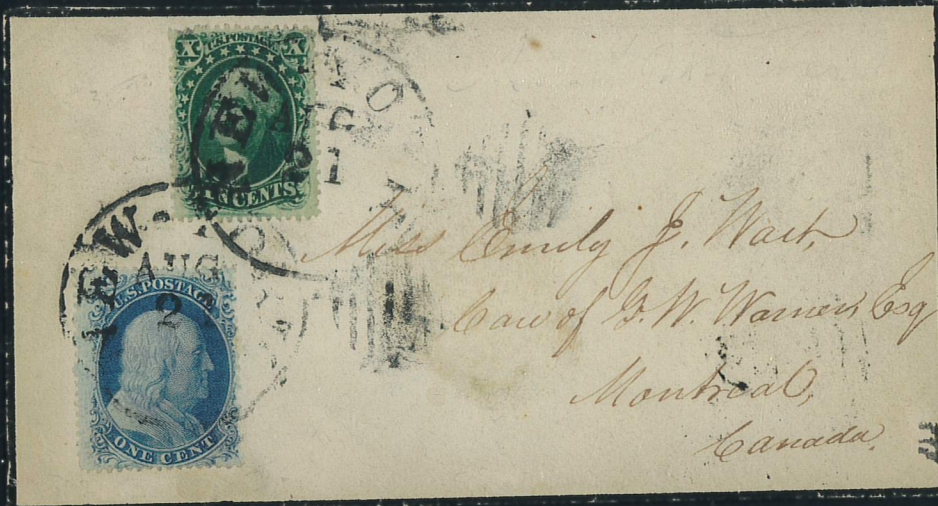 X U.S. POSTAGE X
TEN CENTS
NEW-YO
AUG
21
NEW-YO
AUG
2
U.S. POSTAGE
ONE CENT
Miss Emily J. Wait,
Care of G. W. Warner Esq
Montreal,
Canada